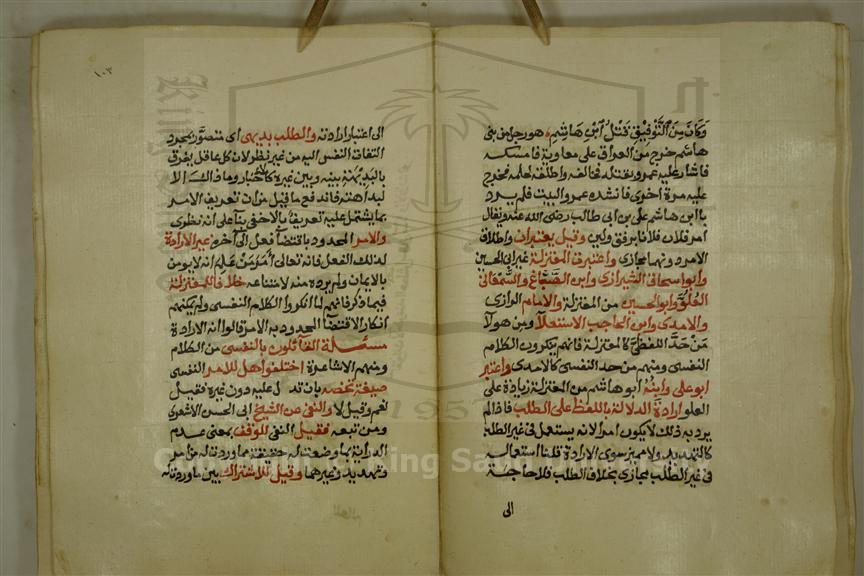 وكان من التوفيق قتل ابن هاشم هو رجل من بنى
هاشم خرج من العراق على معاوية فامسكه
فاشار عليه عمرو بقتله فخالفه واطلقه لحلمه فخرج
عليه مرة اخرى فانشده عمرو البيت فلم يرد
باابن هاشم على بن ابى طالب رضى الله عنه ويقال
امر فلان فلانا برفق ولين وقيل يعتبران واطلاق
الامر دونهما مجازى واعتبرت المعتزلة غير ابى الحسين
وابو اسحاق الشيرازى وابن الصباغ والسمعانى
العلو وابو الحسين من المعتزلة والامام الرازى
والامدى وابن الحاجب الاستعلا ومن هولا
من حد اللفظى كالمعتزلة فانهم ينكرون الكلام
النفسى ومنهم من حد النفسى كالامدى واعتبر
ابو على وابنه ابو هاشم من المعتزلة زيادة على
العلو ارادة الدلالة باللفظ على الطلب فاذا لم
يرد به ذلك لا يكون امرا لانه يستعمل فى غير الطلب
كالتهديد ولا مميز سوى الارادة قلنا استعماله
فى غير الطلب مجازى بخلاف الطلب فلا حاجة
الى
١٠٣
الى اعتبار ارادته والطلب بديهى اى متصور بمجرد
التفات النفس اليه من غير نظر لان كل عاقل يفرق
بالبديهة بينه وبين غيره كالاخبار وما ذلك الا
لبداهته فاندفع ما قيل من ان تعريف الامر
بما يشتمل عليه تعريف بالاخفى بنا على انه نظرى
والامر المحدود باقتضا فعل الى آخره غير الارادة
لذلك الفعل فانه تعالى امر من علم انه لا يومن
بالايمان ولم يرده منه لامتناعه خلافا للمعتزلة
فيما ذكر فانهم لما انكروا الكلام النفسى ولم يمكنهم
انكار الاقتضا المحدود به الامر قالوا انه الارادة
مسئلة القائلون بالنفسى من الكلام
ومنهم الاشاعرة اختلفوا هل للامر النفسى
صيغة تخصه بان تدل عليه دون غيره فقيل
نعم وقيل لا والنفى عن الشيخ ابى الحسن الاشعرى
ومن تبعه فقيل النفى للوقف بمعنى عدم
الدراية بما وضعت له حقيقة مما وردت له من امر
وتهديد وغيرهما وقيل للاشتراك بين ما وردت له